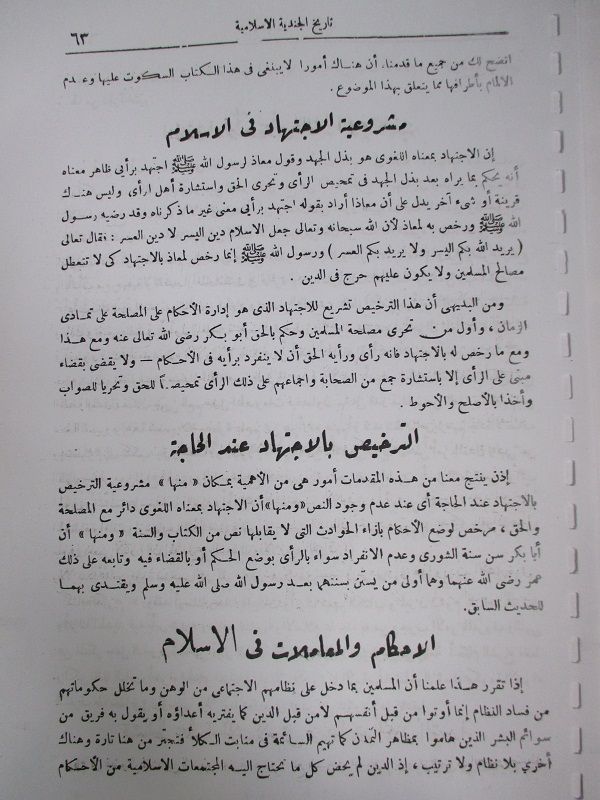 تاريخ الجندية الاسلامية
٦٣
اتضح لك من جميع ما قدمنا. أن هناك أمورا لاينبغى فى هذا الكتاب السكوت عليها وعدم
الالمام بأطرافها مما يتعلق بهذا الموضوع .
مشروعية الاجتهاد فى الاسلام
إن الاجتهاد بمعناه اللغوى هو بذل الجهد وقول معاذ لرسول الله ﷺ اجتهد برأيى ظاهر معناه
أنه يحكم بما يراه بعد بذل الجهد فى تمحيص الرأى وتحرى الحق واستشارة أهل الرأى وليس هناك
قرينة أو شىء آخر يدل على أن معاذا أراد بقوله اجتهد برأيى معنى غير ما ذكرناه وقد رضيه رسول
الله ﷺ ورخص به لمعاذ لأن الله سبحانه وتعالى جعل الاسلام دين اليسر لا دين العسر : فقال تعالى
( يريد الله بكم اليسر ولا يريد بكم العسر ) ورسول الله ﷺ إنما رخص لمعاذ بالاجتهاد كى لا تتعطل
مصالح المسلمين ولا يكون عليهم حرج فى الدين .
ومن البديهى أن هذا الترخيص تشريع للاجتهاد الذى هو إدارة الأحكام على المصلحة على تمادى
الزمان ، وأول من تحرى مصلحة المسلمين وحكم بالحق أبو بكر رضى الله تعالى عنه ومع هذا
ومع ما رخص له بالاجتهاد فانه رأى ورأيه الحق أن لا ينفرد برأيه فى الأحكام — ولا يقضى بقضاء
مبنى على الرأى إلا باستشارة جمع من الصحابة واجماعهم على ذلك الرأى تمحيصاً للحق وتحريا للصواب
وأخذا بالأصلح والأحوط .
الترخيص بالاجتهاد عند الحاجة
إذن ينتج معنا من هذه المقدمات أمور هى من الأهمية بمكان « منها » مشروعية الترخيص
بالاجتهاد عند الحاجة أى عند عدم وجود النص «ومنها» أن الاجتهاد بمعناه اللغوى دائر مع المصلحة
والحق ، مرخص لوضع الأحكام بازاء الحوادث التى لا يقابلها نص من الكتاب والسنة « ومنها » أن
أبا بكر سن سنة الشورى وعدم الانفراد سواء بالرأى بوضع الحكم أو بالقضاء فيه وتابعه على ذلك
عمر رضى الله عنهما وهما أولى من يستن بسنتهما بعد رسول الله صلى الله عليه وسلم ويقتدى بهما
للحديث السابق .
الاحكام والمعاملات فى الاسلام
إذا تقرر هذا علمنا أن المسلمين بما دخل على نظامهم الاجتماعى من الوهن وما تخلل حكوماتهم
من فساد النظام إنما أوتوا من قبل أنفسهم لا من قبل الدين كما يفتريه أعداؤه أو يقول به فريق من
سوائم البشر الذين هاموا بمظاهر التمدن كما تهيم السائمة فى منابت الكلأ فتجتر من هنا تارة وهناك
أخري بلا نظام ولا ترتيب ، إذ الدين لم يحض كل ما تحتاج اليه المجتمعات الاسلامية من الأحكام